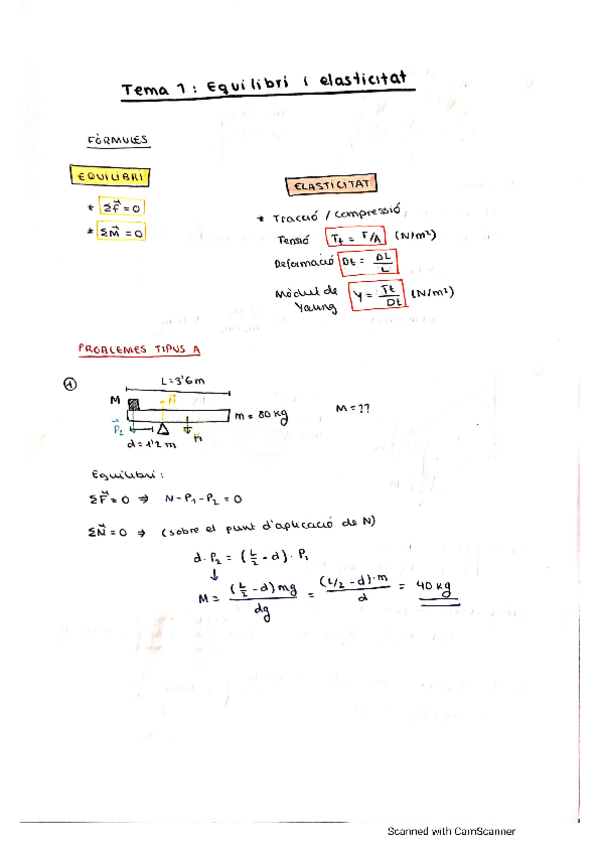 Tema 1: Equilibri i elasticitat
FÒRMULES
EQUILIBRI
* ΣF⃗ = 0
* ΣM⃗ = 0
ELASTICITAT
* Tracció / compressió
Tensió Tt = F/A (N/m²)
Deformació Dt = DL/L
Mòdul de Young Y = Tt/Dt (N/m²)
PROBLEMES TIPUS A
① L=3'6m
M N
m = 80 kg M = ??
P⃗₂ P⃗₁
d = 1'2 m
Equilibri:
ΣF⃗ = 0 ⇒ N - P₁ - P₂ = 0
ΣM⃗ = 0 ⇒ (sobre el punt d'aplicació de N)
d · P₂ = (L/2 - d) · P₁
↓
M = (L/2 - d) mg / dg = (L/2 - d) · m / d = 40 kg
Scanned with CamScanner